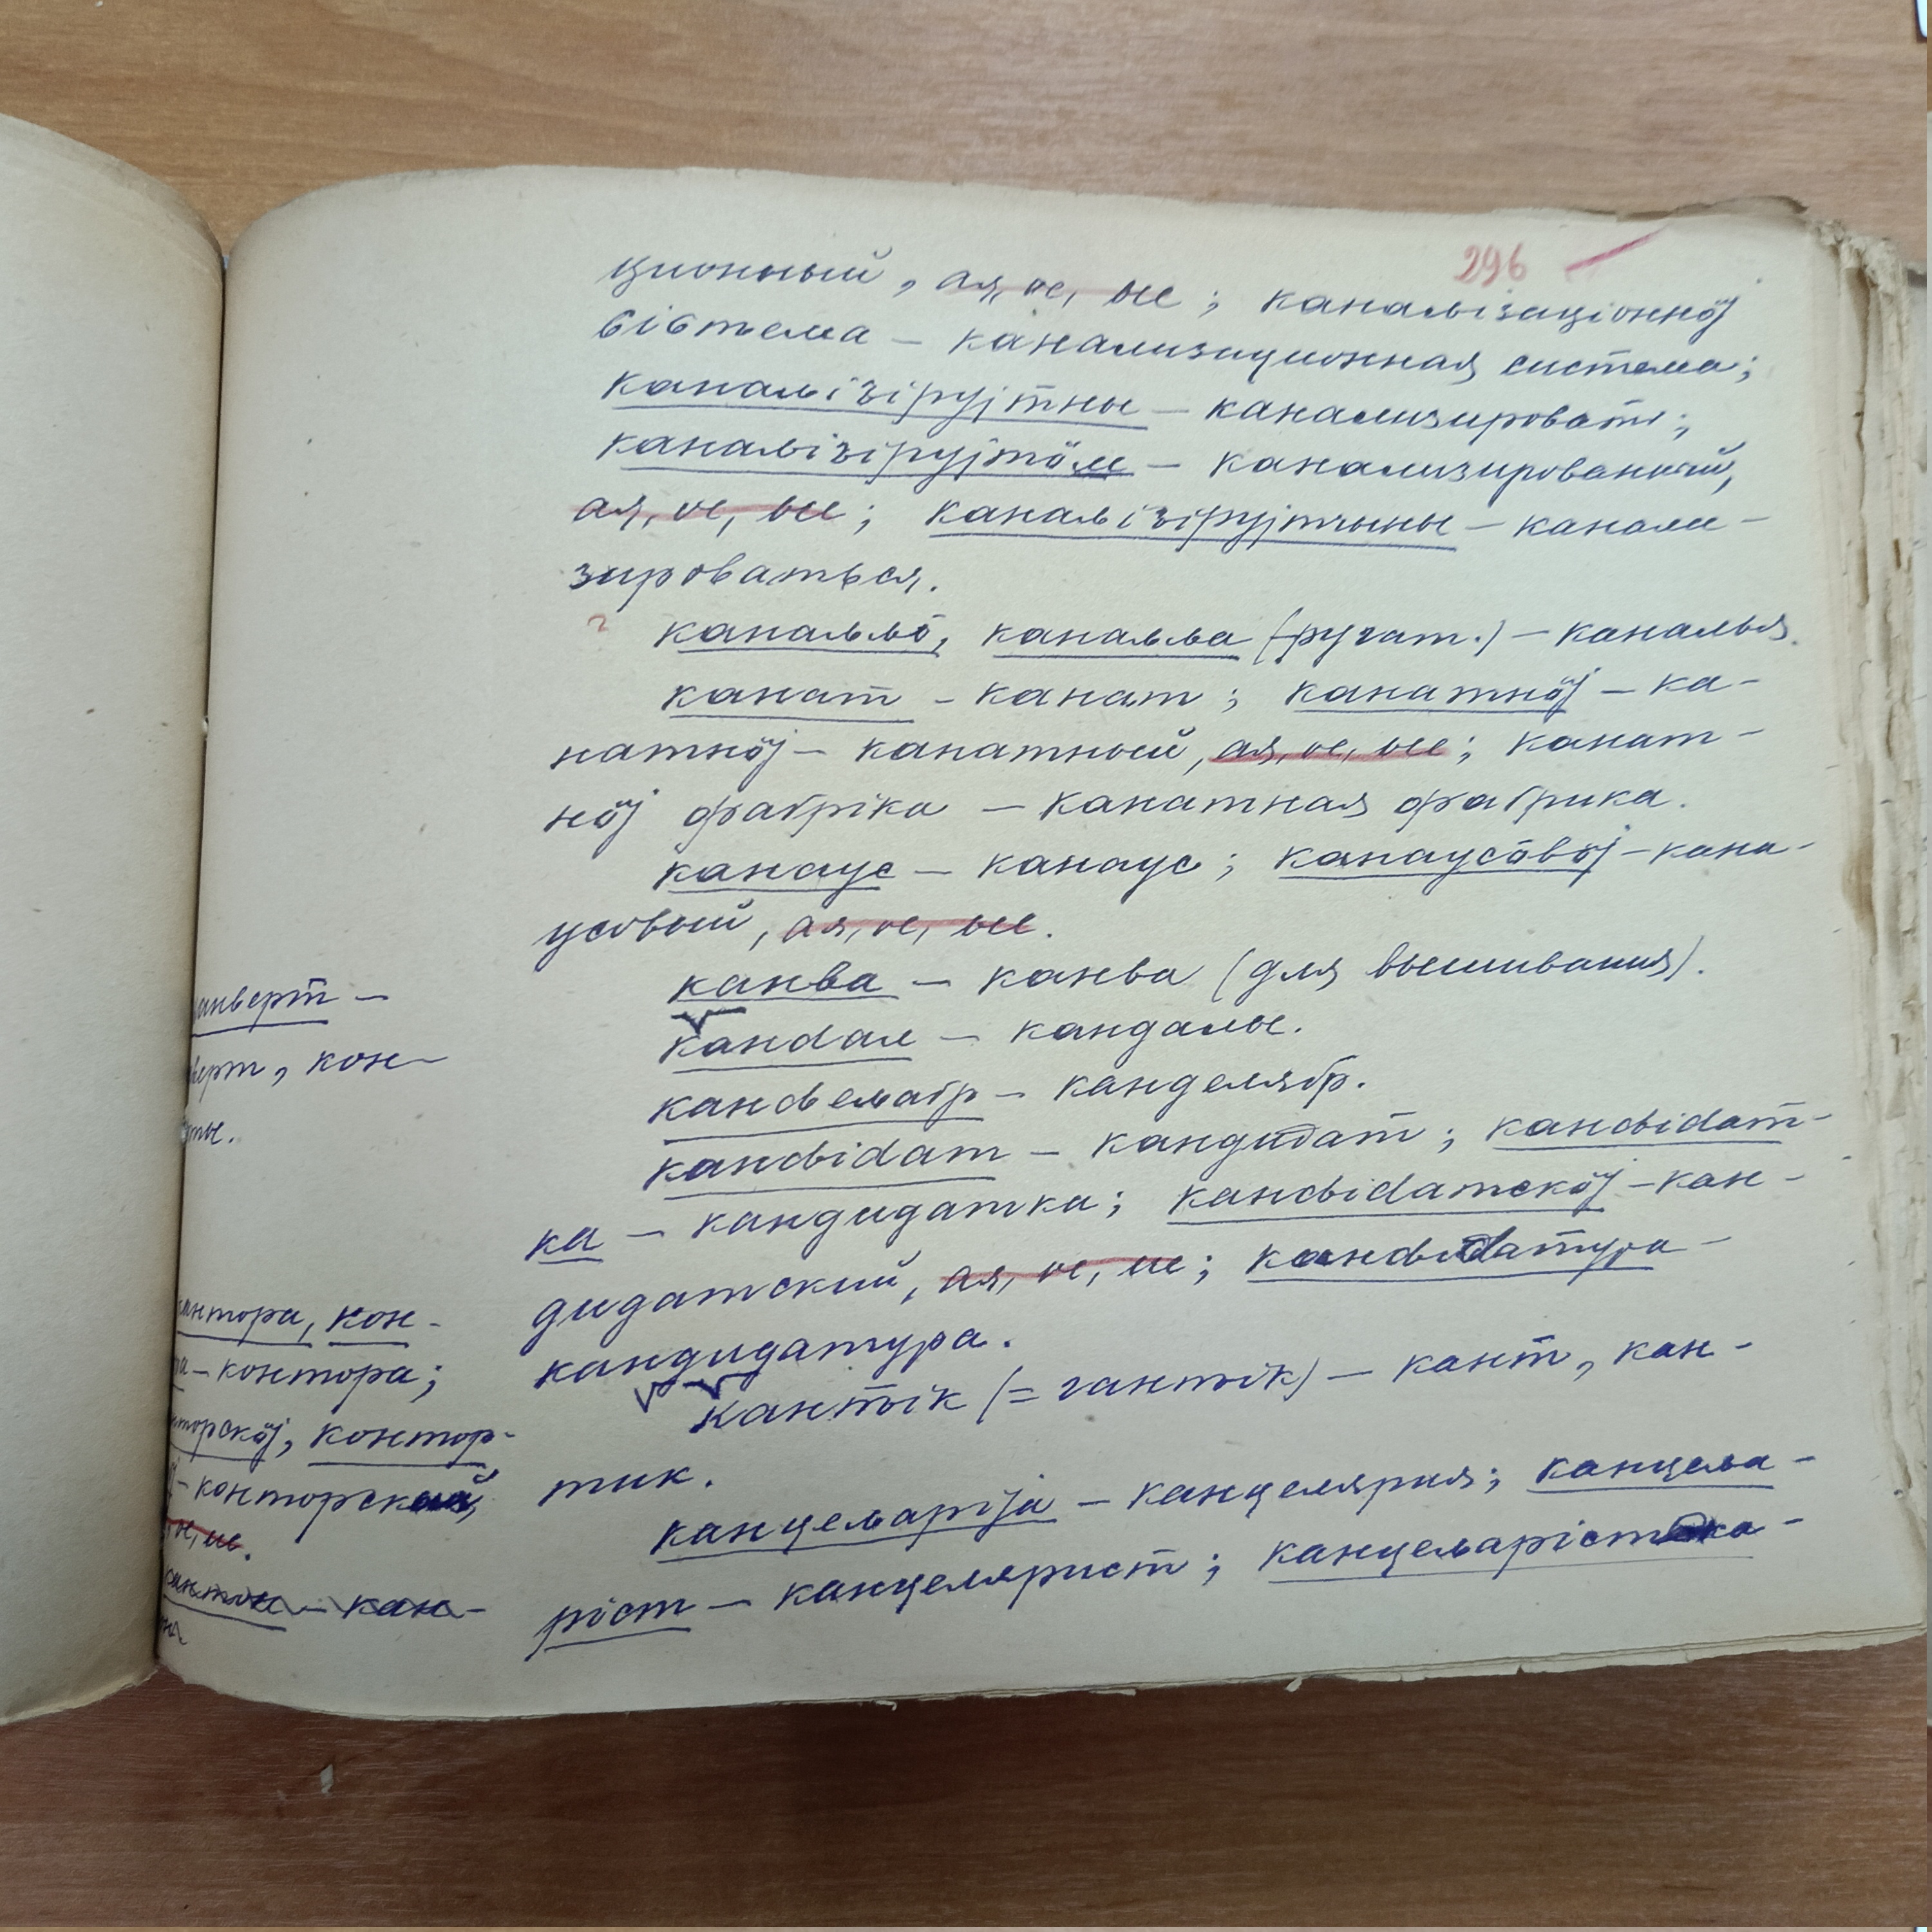 296
ционный, ая, ое, ые; канаԉізаціоннӧј
ԍіԍԏема – канализационная система;
канаԉіԅірујтны – канализировать;
канаԉіԅірујтӧм – канализированный,
ая, ое, ые; канаԉіԅірујтчыны – канали-
зироваться.
? канаԉԉӧ, канаԉԉа (ругат.) – каналья.
канат – канат; канатнӧј – ка-
натнӧј – канатный, ая, ое, ые; канат-
нӧј фабріка – канатная фабрика.
канаус – канаус; канаусӧвӧј – кана-
усовый, ая, ое, ые.
канва – канва (для вышивания).
канԁал – кандалы.
канԃеԉабр – канделябр.
канԃіԁат – кандидат; канԃіԁат-
ка – кандидатка; канԃіԁатскӧј – кан-
дидатский, ая, ое, ие; канԃіԁатура –
кандидатура.
канԏік (= ганԏік) – кант, кан-
тик.
канцеԉаріја – канцелярия; канцеԉа-
ріст – канцелярист; канцеԉарістка –
анверт –
верт, кон-
ерты.
антора, кон-
ра – контора;
нторскӧј, контор-
– конторский,
ое, ие.
кантон – кан-